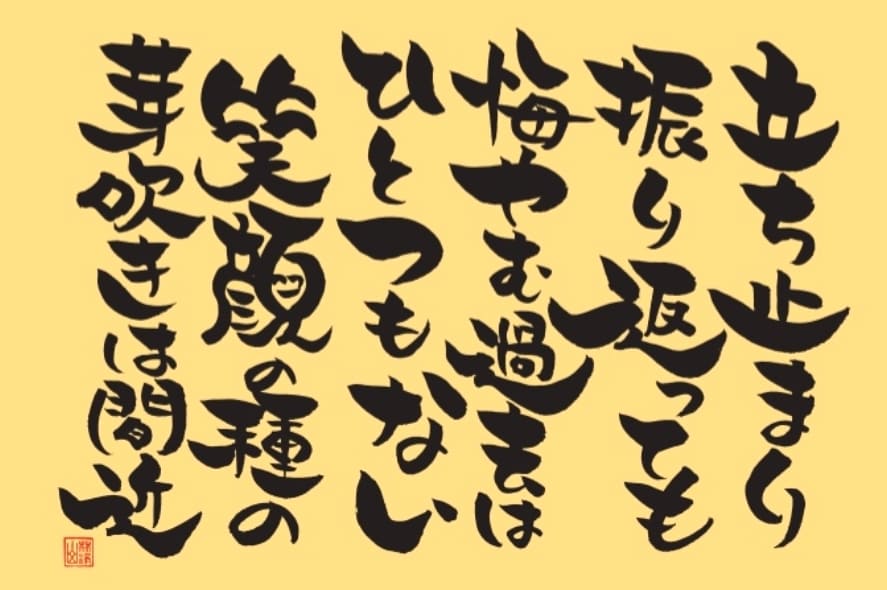 立ち止まり
振り返っても
悔やむ過去は
ひとつもない
笑顔の種の
芽吹きは間近